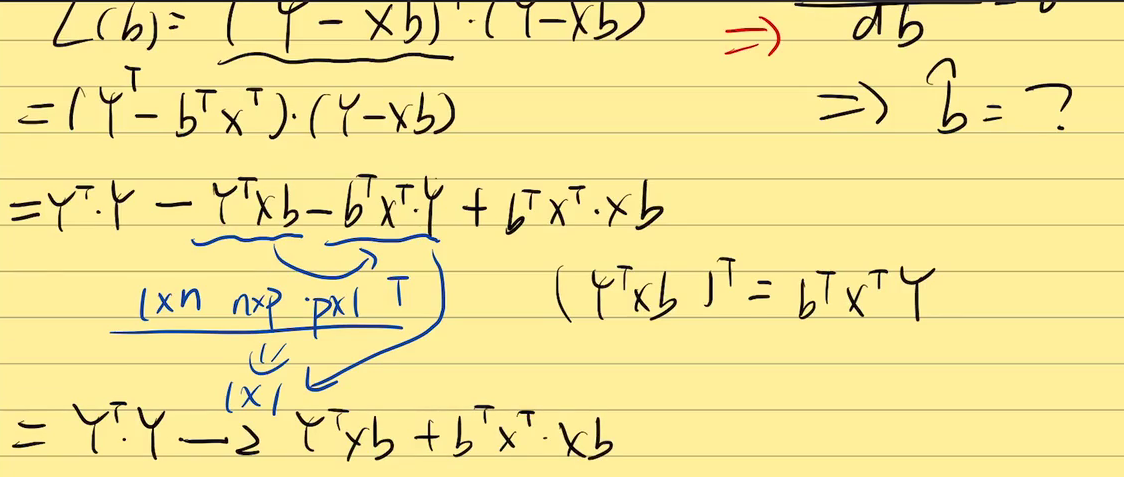 L(b) = (Y - Xb)ᵀ·(Y-Xb) ⇒ db = 0
= (Yᵀ - bᵀxᵀ)·(Y-xb) ⇒ b̂ = ?
= Yᵀ·Y - Yᵀxb - bᵀxᵀ·Y + bᵀxᵀ·xb
1xn nxp ·px1 T (Yᵀxb)ᵀ = bᵀxᵀY
1x1
= Yᵀ·Y - 2 Yᵀxb + bᵀxᵀ·xb